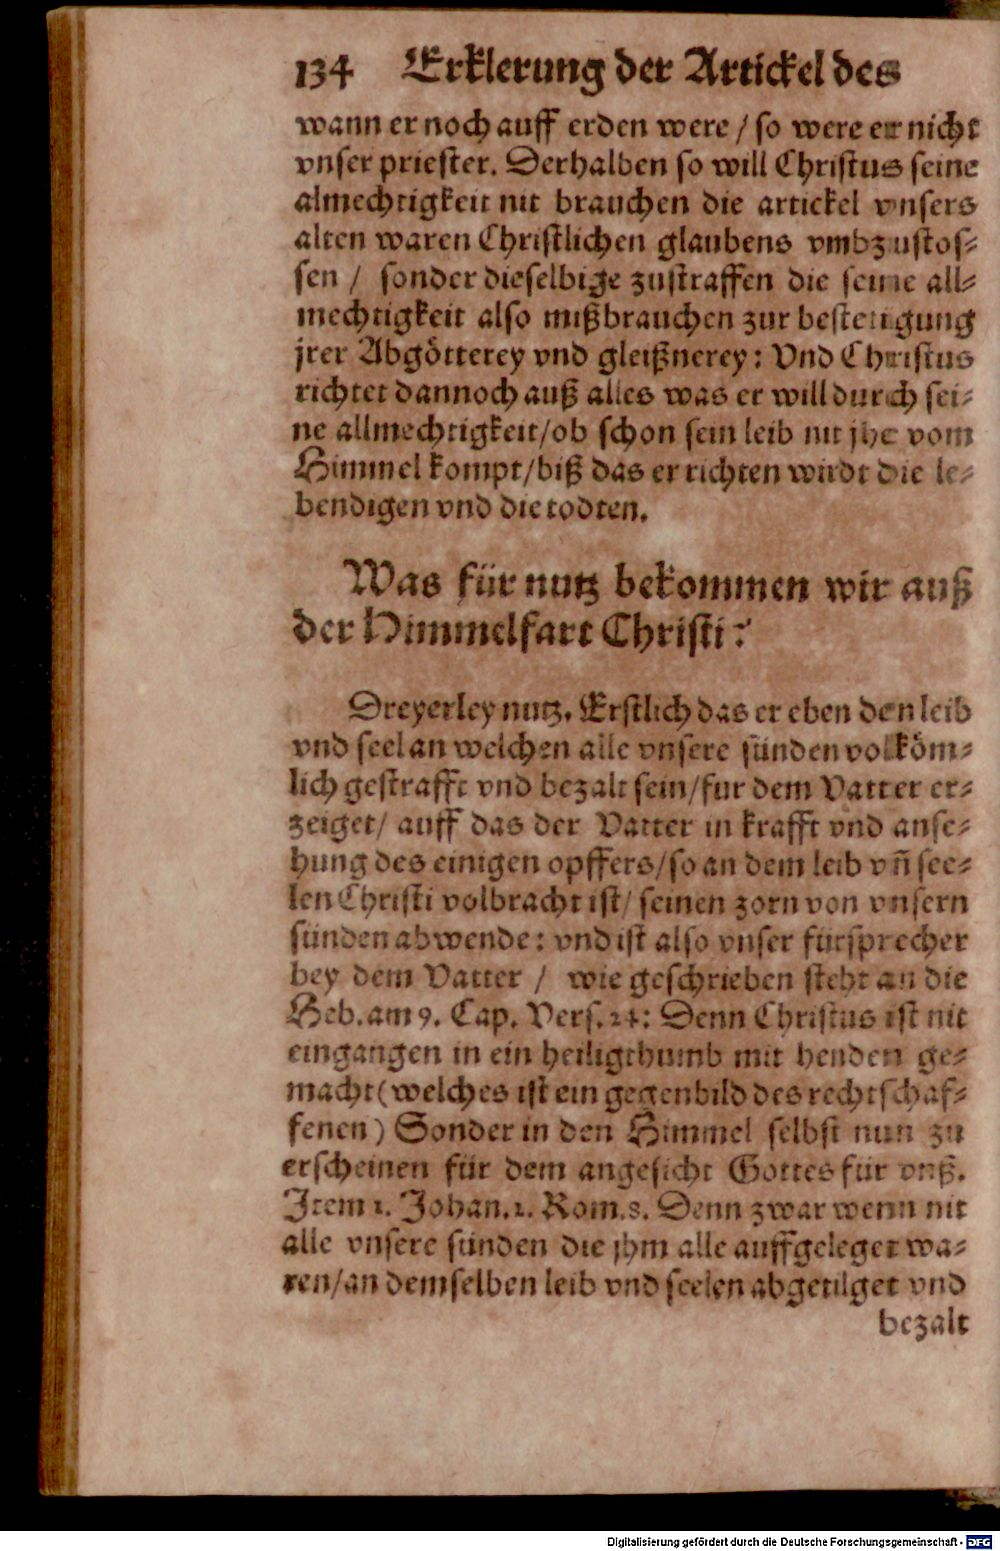 134 Erklerung der Artickel des
wann er noch auff erden were / so were er nicht
vnser priester. Derhalben so will Christus seine
almechtigkeit nit brauchen die artickel vnsers
alten waren Christlichen glaubens vmbzustos⸗
sen / sonder dieselbige zustraffen die seine all⸗
mechtigkeit also mißbrauchen zur bestetigung
jrer Abgötterey vnd gleißnerey: Vnd Christus
richtet dannoch auß alles was er will durch sei⸗
ne allmechtigkeit/ob schon sein leib nit jhe vom
Himmel kompt/biß das er richten wirdt die le⸗
bendigen vnd die todten.
Was für nutz bekommen wir auß
der Himmelfart Christi?
Dreyerley nutz. Erstlich das er eben den leib
vnd seel an welchen alle vnsere sünden volköm⸗
lich gestrafft vnd bezalt sein/fur dem Vatter er⸗
zeiget/ auff das der Vatter in krafft vnd anse⸗
hung des einigen opffers/so an dem leib vñ see⸗
len Christi volbracht ist/ seinen zorn von vnsern
sünden abwende: vnd ist also vnser fürsprecher
bey dem Vatter / wie geschrieben steht an die
Heb. am 9. Cap. Vers. 24: Denn Christus ist nit
eingangen in ein heiligthumb mit henden ge⸗
macht (welches ist ein gegenbild des rechtschaf⸗
fenen) Sonder in den Himmel selbst nun zu
erscheinen für dem angesicht Gottes für vnß.
Item 1. Johan. 2. Rom. 8. Denn zwar wenn nit
alle vnsere sünden die jhm alle auffgeleget wa⸗
ren/an demselben leib vnd seelen abgetilget vnd
bezalt
Digitalisierung gefördert durch die Deutsche Forschungsgemeinschaft - DFG